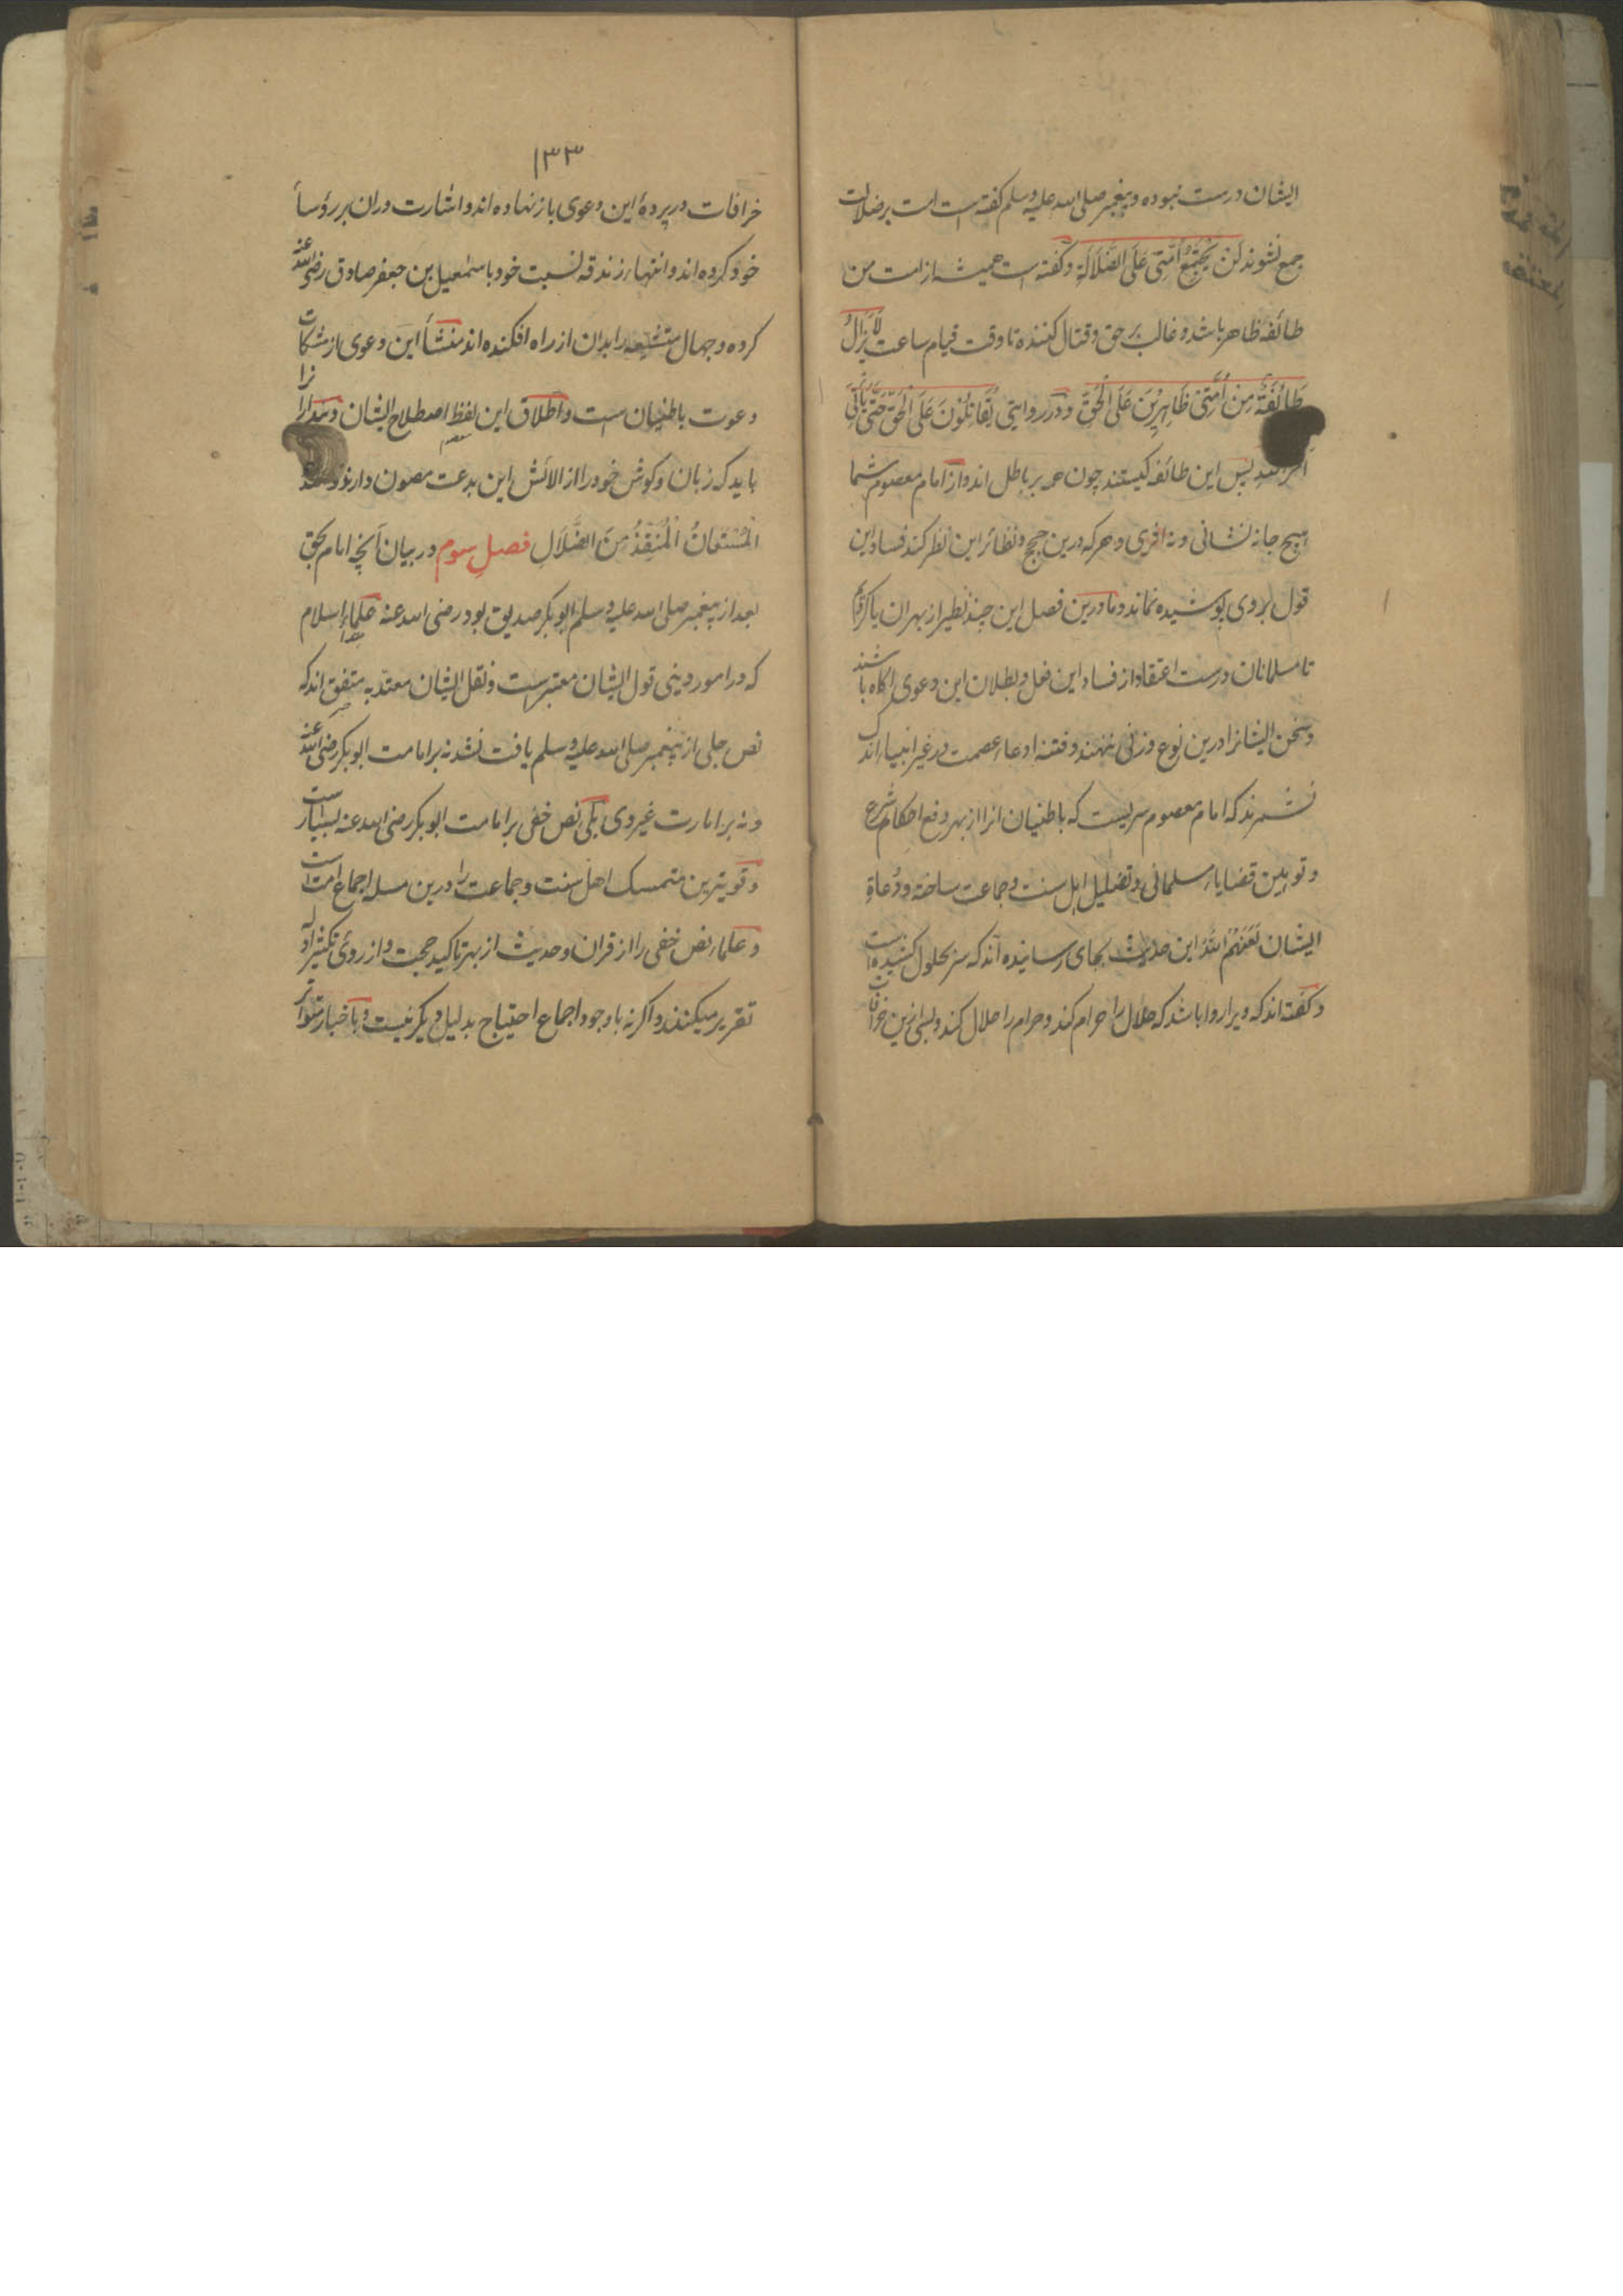 ایشان درست نبوده و پیغمبر صلی الله علیه وسلم کفته است امت بر ضلالت
جمع نشوند لَنْ یَجْتَمِعَ اُمَّتِی عَلَی الضَّلَالَةِ و کفته است همیشه از امت من
طائفه ظاهر باشد و غالب بر حق و قتال کننده تا وقت قیام ساعت لَا یَزَالُ
طَائِفَةٌ مِنْ اُمَّتِی ظَاهِرِیْنَ عَلَی الْحَقِّ و در روایتی یُقَاتِلُوْنَ عَلَی الْحَقِّ حَتّٰی یَأْتِیَ
پس این طائفه کیستند چون همه بر باطل اند و از امام معصوم شما
هیچ جا نه نشانی و نه اثری و هر که درین حجج و نظائر این نظر کند فساد این
قول بر وی پوشیده نماند و ما درین فصل این چند نظیر از بهر ان یاد کردیم
تا مسلمانان درست اعتقاد از فساد این فعل و بطلان این دعوی اکاه باشند
و سخن ایشانرا درین نوع وزنی ننهند و فتنه ادعاء عصمت در غیر انبیاء اندک
نشمرند که امام معصوم سریست که باطنیان انرا از بهر رفع احکام شرع
و توهین قضایاء مسلمانی و تضلیل اهل سنت و جماعت ساخته و دُعاةِ
ایشان لَعَنَهُمُ اللهُ این حدیث بجای رسانیده اند که سر بحلول کشیده است
و کفته اند که ویرا روا باشد که حلال را حرام کند و حرام را حلال کند و بسی ازین خرافات
۱۳۳
خرافات در پردهٔ این دعوی باز نهاده اند و اشارت دران بر رؤسأ
خود کرده اند و انتهاء زندقه نسبت خود باسمعیل بن جعفر صادق رضی الله عنه
کرده و جهال متشیعه را بدان از راه افکنده اند منشأ این دعوی از مشکات
دعوت باطنیان است و اطلاق این لفظ اصطلاح ایشان
باید که زبان و کوش خود را از الائش این بدعت مصون دارند
الْمُسْتَعَانُ الْمُنْقِذُ مِنَ الضَّلَالِ فصلِ سوم در بیان آنچه امام بحق
بعد از پیغمبر صلی الله علیه وسلم ابوبکر صدیق بود رضی الله عنه علماء اسلام
که در امور دینی قول ایشان معتبر است و نقل ایشان معتد به متفق اند که
نص جلی از پیغمبر صلی الله علیه وسلم یافت نشد نه بر امامت ابوبکر رضی الله عنه
و نه بر امارت غیر وی بلی نص خفی بر امامت ابوبکر رضی الله عنه بسیار است
و قویترین متمسک اهل سنت و جماعت را درین مسله اجماع امت است
و علماء نص خفی را از قران و حدیث از بهر تاکید حجت و از روئ تکثیر ادله
تقریر میکنند و اکر نه با وجود اجماع احتیاج بدلیل دیکر نیست و باخبار متواتر